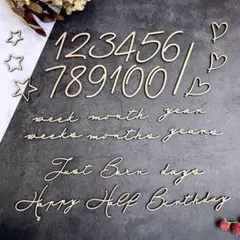 123456
789100/
week month year
weeks months years
Just Born days
Happy Half Birthday